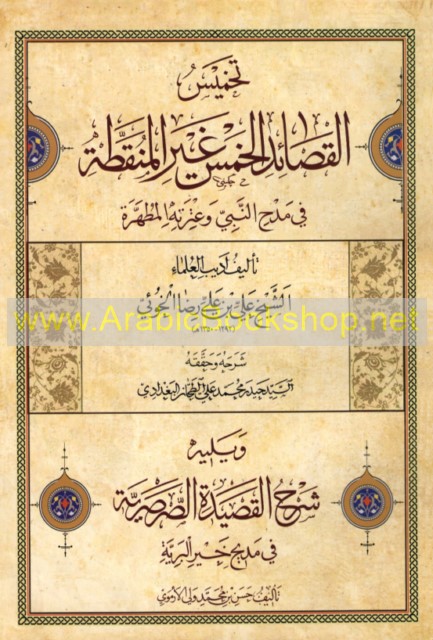 تخميس
القصائد الخمس غير المنقطة
في مدح النبي وعترته المطهرة
تأليف أديب العلماء
الشيخ علي بن علي رضا الخوئي
www.ArabicBookshop.net
شرحه وحققه
السيد حيدر محمد علي العطار البغدادي
ويليه
شرح القصيدة الصرصرية
في مديح خير البرية
تأليف حسن بن محمد ولي الأرموي